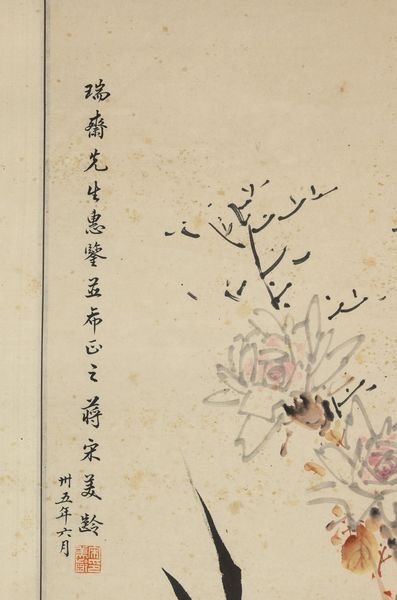 瑞齋先生惠鑒並希正之蔣宋美齡
卅五年六月